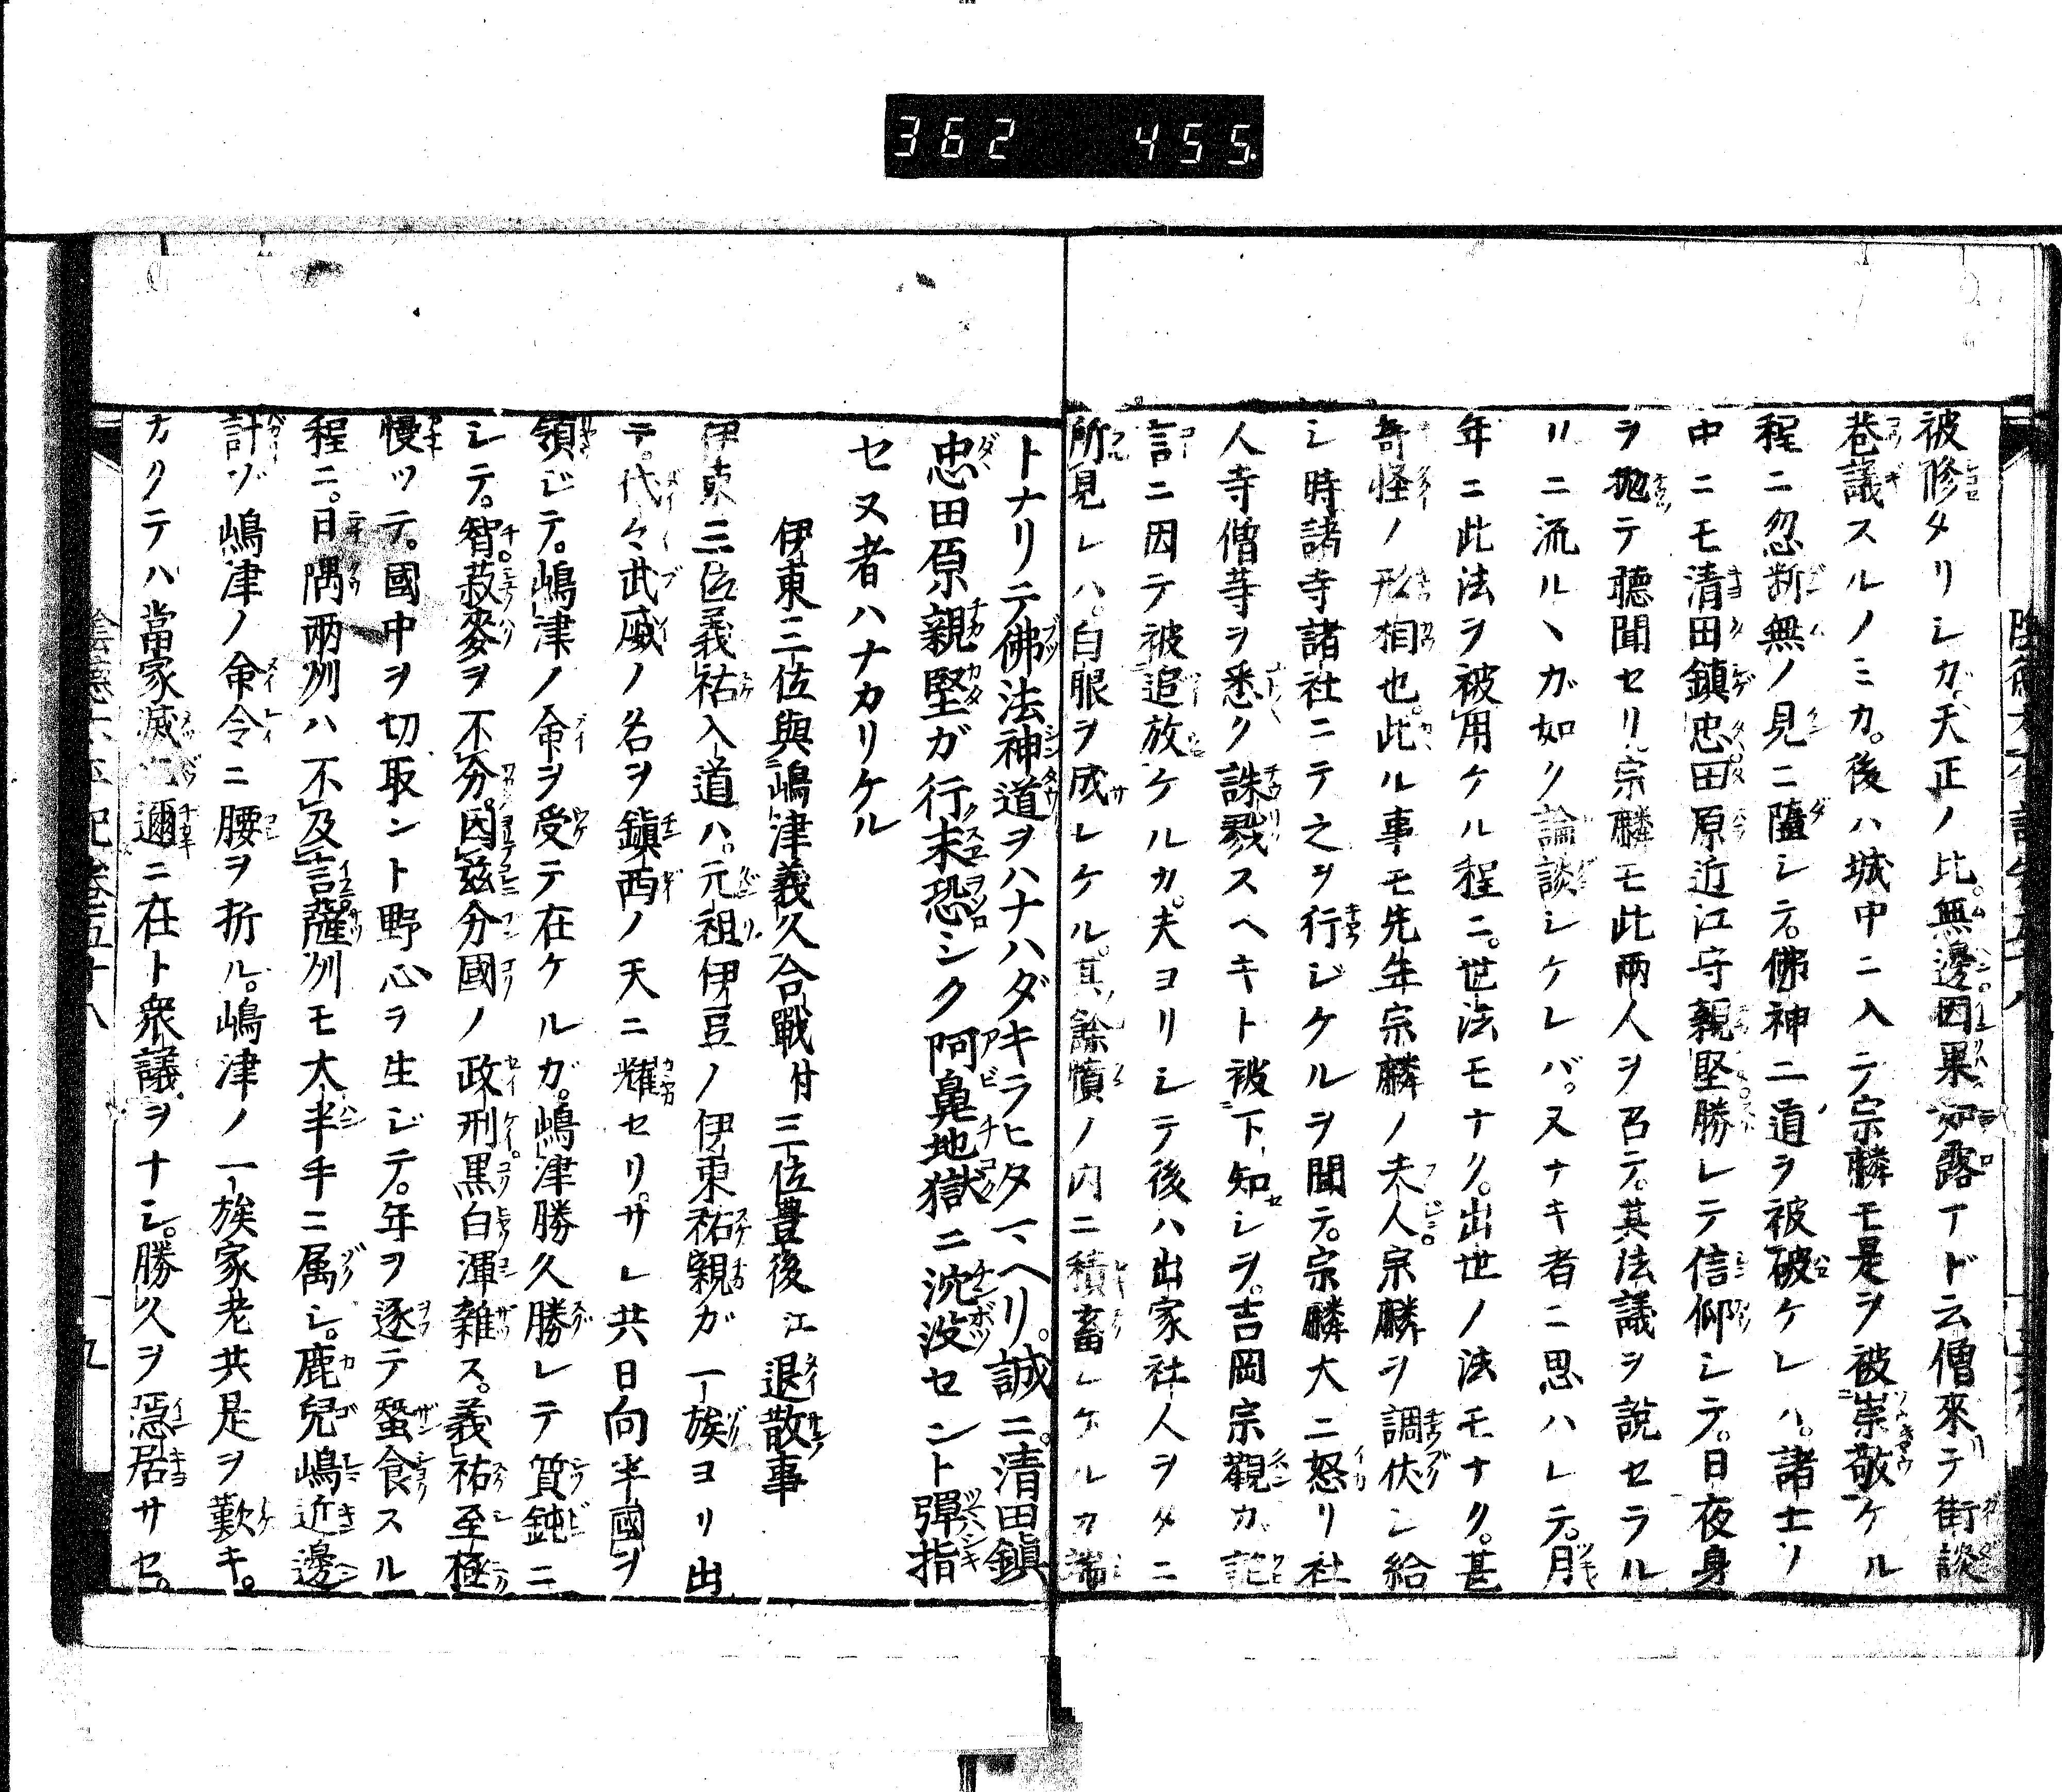 362 455.
被修タリシガ。天正ノ比。無邊因果露アド云僧來テ街談
巷議スルノミカ。後ハ城中ニ入テ宗麟モ是ヲ被崇敬ケル
程ニ忽断無ノ見ニ墮シテ。佛神二道ヲ被破ケレハ。諸士ノ
中ニモ清田鎮忠田原近江守親堅勝レテ信仰シテ。日夜身
ヲ抛テ聴聞セリ宗麟モ此兩人ヲ召テ。其法議ヲ說セラル
リニ流ルヽガ如ク論談シケレバ。又ナキ者ニ思ハレテ。月
年ニ此法ヲ被用ケル程ニ。世法モナク。出世ノ法モナク。甚
奇怪ノ形相也。此ル事モ先年宗麟ノ夫人。宗麟ヲ調伏シ給
シ時諸寺諸社ニテ之ヲ行ジケルヲ聞テ。宗麟大ニ怒リ社
人寺僧等ヲ悉ク誅戮スヘキト被下知シヲ。吉岡宗觀カ
言ニ因テ被追放ケルカ。夫ヨリシテ後ハ出家社人ヲタニ
所見レハ。白眼ヲ成レケル。其餘憤ノ内ニ積畜レケルカ端
トナリテ佛法神道ヲハナハダキラヒタマヘリ。誠ニ。清田鎮
忠田原親堅ガ行末恐シク阿鼻地獄ニ沈没セント彈指
セヌ者ハナカリケル
伊東三位與嶋津義久合戰付三位豊後江退散事
伊東三位義祐入道ハ。元祖伊豆ノ伊東祐親ガ一族ヨリ出
テ。代々武威ノ名ヲ鎮西ノ天ニ耀セリ。サレ共日向半國ヲ
領ジテ。嶋津ノ命ヲ受テ在ケルガ。嶋津勝久勝レテ質鈍ニ
シテ。智菽麥ヲ不分。因茲分國ノ政刑黒白渾雜ス。義祐至極
慢ッテ。國中ヲ切取ント野心ヲ生ジテ。年ヲ逐テ蠶食スル
程ニ。日隅兩州ハ不及言。薩州モ大半手ニ属シ。鹿兒嶋近邊
計ゾ嶋津ノ命令ニ腰ヲ折ル。嶋津ノ一族家老共是ヲ歎キ。
カクテハ當家滅亡邇ニ在ト衆議ヲナシ。勝久ヲ隱居サセ。